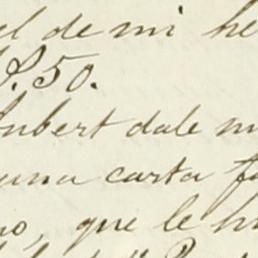 el de mi he
$.50.
ubert dale m
una carta f
io, que le h